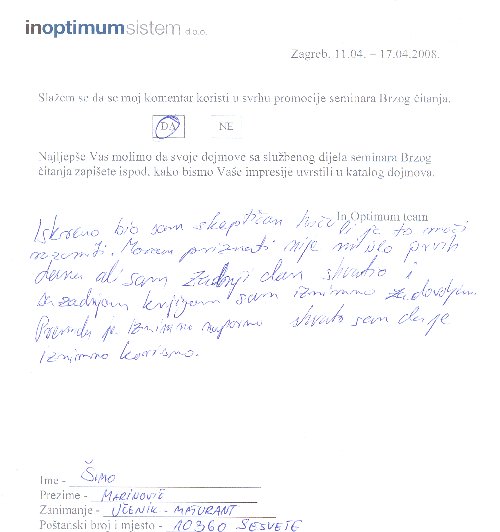 inoptimumsistem d.o.o.
Zagreb. 11.04. – 17.04.2008.
Slažem se da se moj komentar koristi u svrhu promocije seminara Brzog čitanja.
DA NE
Najljepše Vas molimo da svoje dojmove sa službenog dijela seminara Brzog
čitanja zapišete ispod, kako bismo Vaše impresije uvrstili u katalog dojmova.
In Optimum team
Iskreno bio sam skeptičan je to moći
razumiti. Moram priznati nije mi išlo prvih
dana al' sam zadnji dan shvatio i
sa zadnjom knjigom sam iznimno zadovoljan.
Premda je iznimno naporno shvatio sam da je
iznimno korisno.
Ime - Šimo
Prezime - MARINOVIĆ
Zanimanje - UČENIK - MATURANT
Poštanski broj i mjesto - 10360 SESVETE